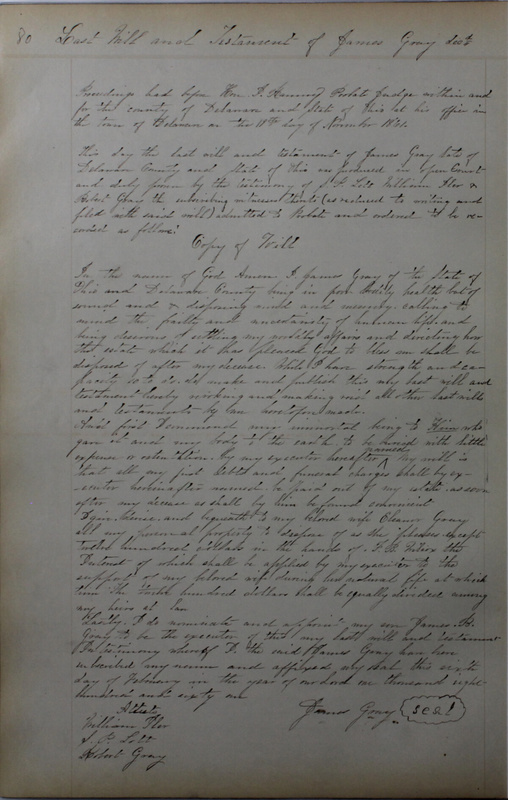 80 Last Will and Testament of James Gray decd
Proceedings had before Hon. Probate Judge within and
for the county of Delaware and State of Ohio at his office in
the town of Delaware on the 18th day of November 1861.
This day the last will and testament of James Gray late of
Delaware County and State of Ohio was produced in open Court
and duly proven by the testimony of S. P. Lott William &
Robert Gray the subscribing witnesses thereto (as reduced to writing and
filed with said will) admitted to Probate and ordered to be re-
corded as follows:
Copy of Will
In the name of God Amen I James Gray of the State of
Ohio and Delaware County being in poor bodily health but of
sound and & disposing mind and memory calling to
mind the frailty and uncertainty of human life and
being desirous of settling my worldly affairs and directing how
the estate which it has pleased God to bless me shall be
disposed of after my decease while I have strength and ca-
pacity so to do. Do make and publish this my last will and
testament hereby revoking and making void all other last wills
and testaments by me heretofore made.
And first I commend my immortal being to Him who
gave it and my body to the earth to be buried with little
expense or ostentation by my executor hereafter named My will is
that all my just debts and funeral charges shall by ex-
ecutor hereinafter named be paid out of my estate as soon
after my decease as shall by him be found convenient
I give devise and bequeath to my beloved wife Eleanor Gray
all my personal property to dispose of as she pleases except
twelve hundred dollars in the hands of the
Interest of which shall be applied by my executor to the
support of my beloved wife during her natural life at which
time the twelve hundred dollars shall be equally divided among
my heirs at law
Lastly. I do nominate and appoint my son James H.
Gray to be the executor of this my last will and testament
In testimony whereof I the said James Gray have here
unto my name and affixed my seal this sixth
day of February in the year of our Lord one thousand eight
hundred and sixty one
Attest James Gray seal
William
S. P. Lott
Robert Gray